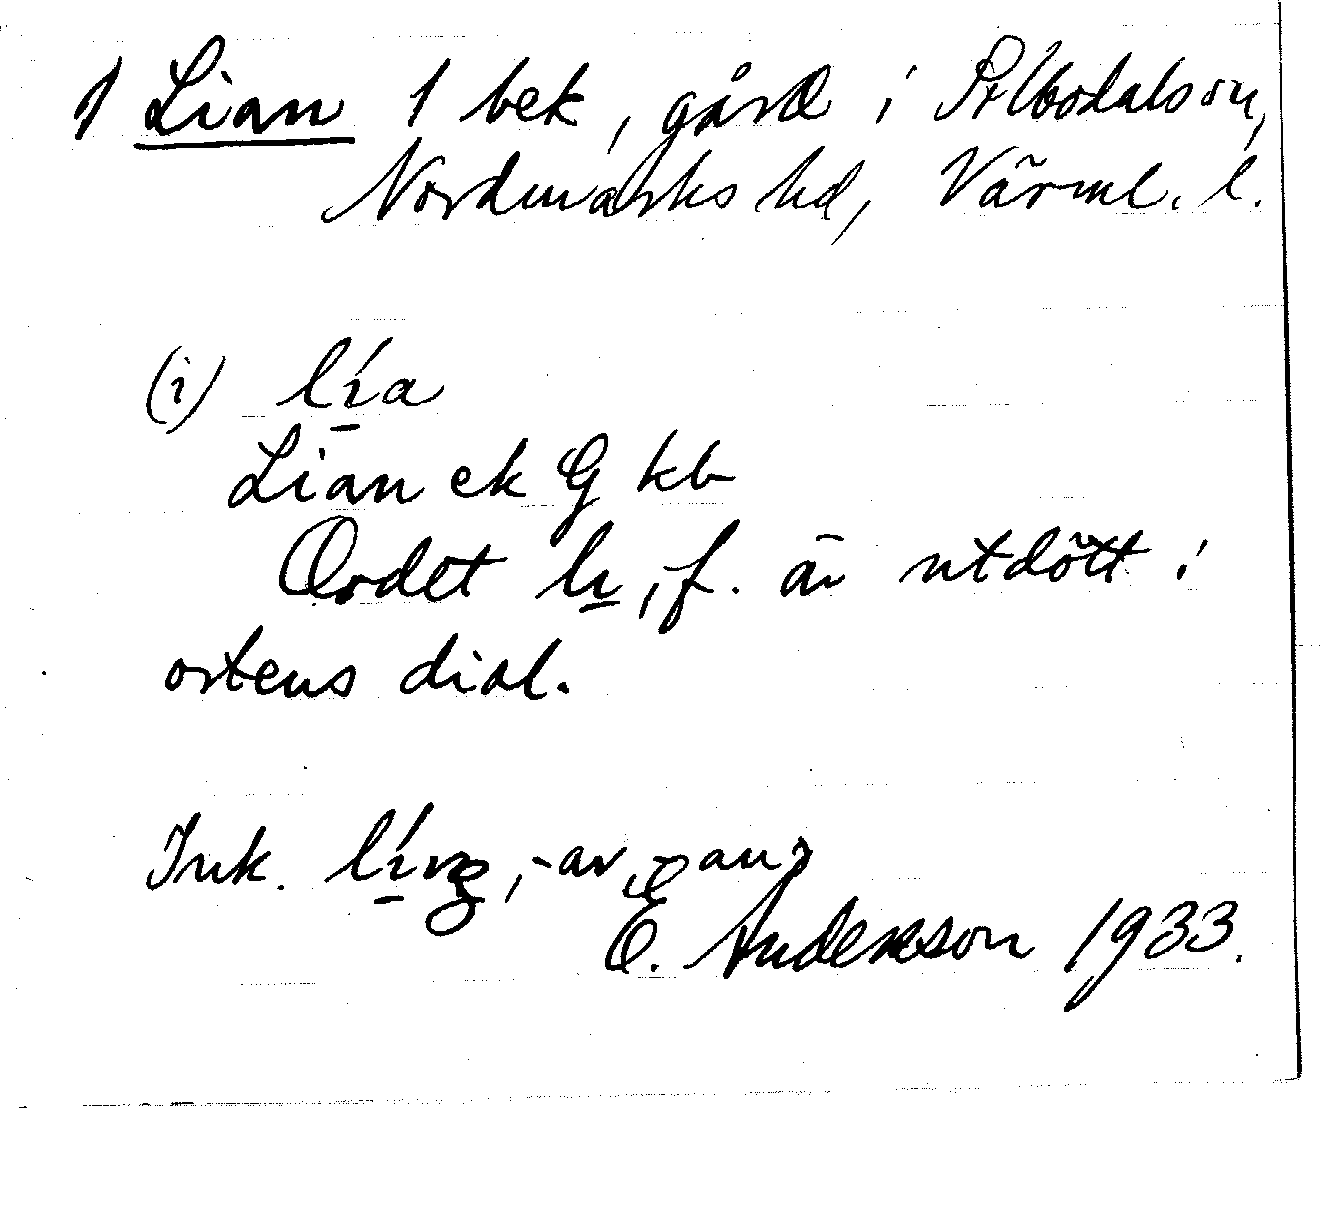 1 Lian 1 bek, gård i Silbodals sn,
Nordmarks hd, Värml. l.
(i) lía
Lian ek G kb
Ordet li, f. är utdött i
ortens dial.
Ink. , -ar,
E. Andersson 1933.